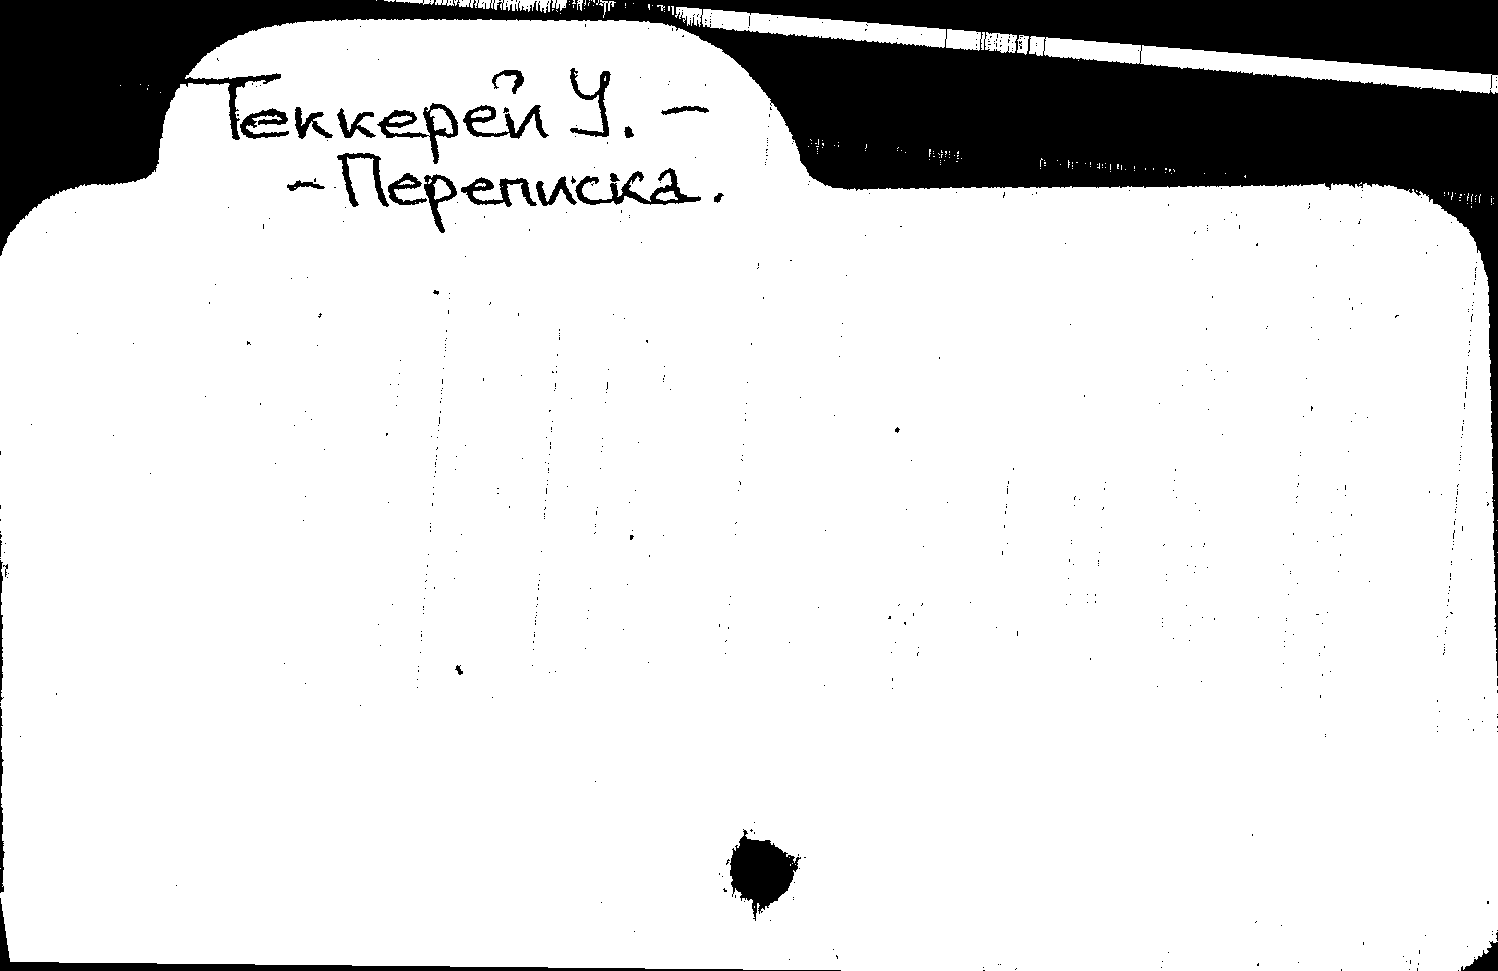 Теккерей У. –
– Переписка.